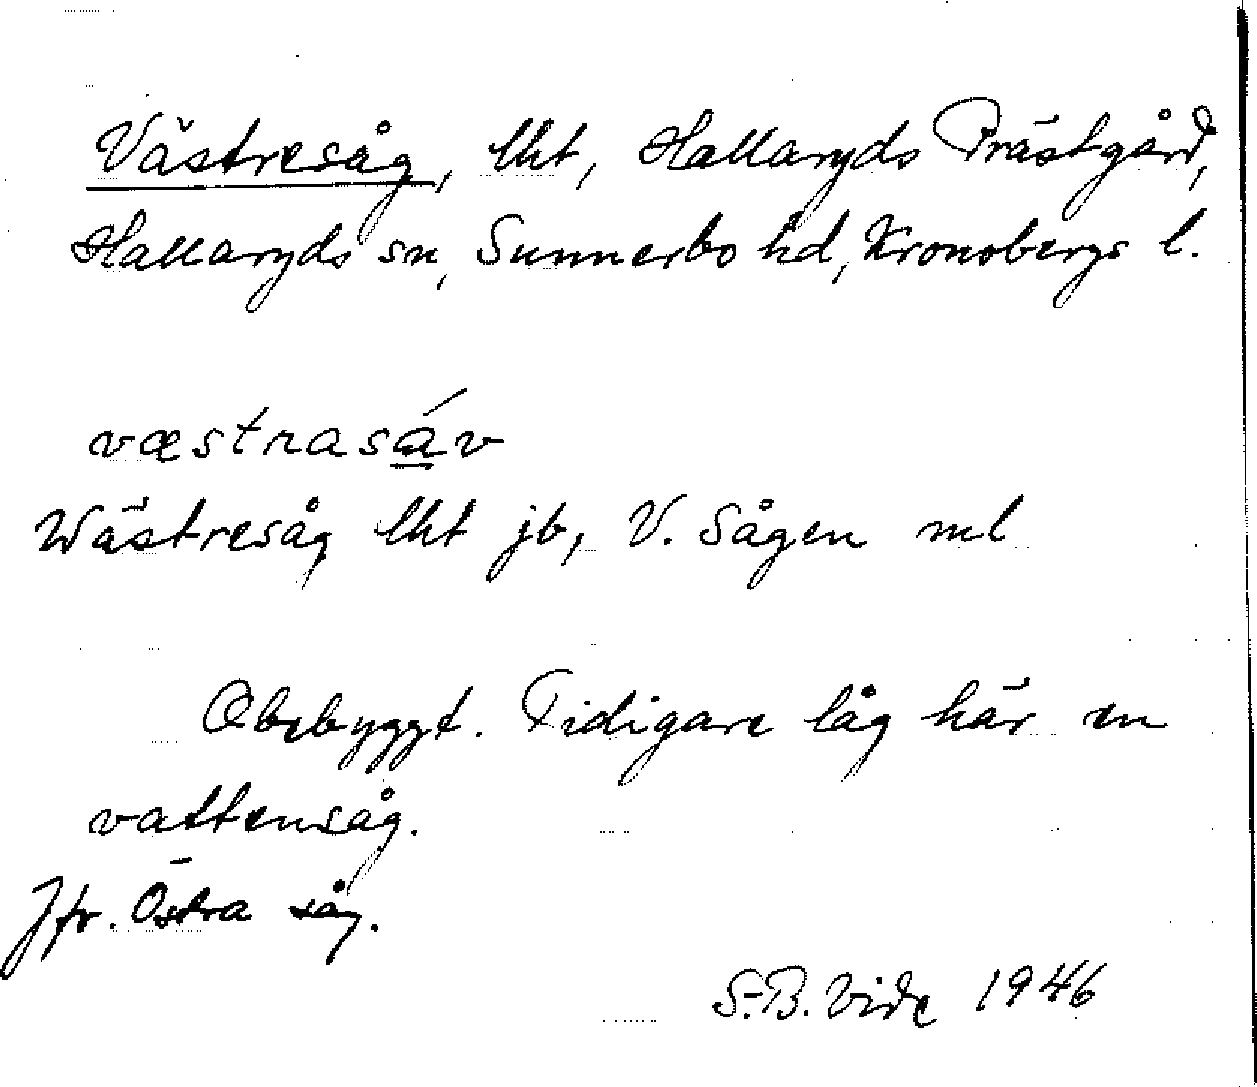 Västresåg, lht, Hallaryds Prästgård,
Hallaryds sn, Sunnerbo hd, Kronobergs l.
væstrasáv
Wästresåg lht jb, V. Sågen ml
Obebyggt. Tidigare låg här en
vattensåg.
Jfr. Östra såg.
S.-B. Vide 1946